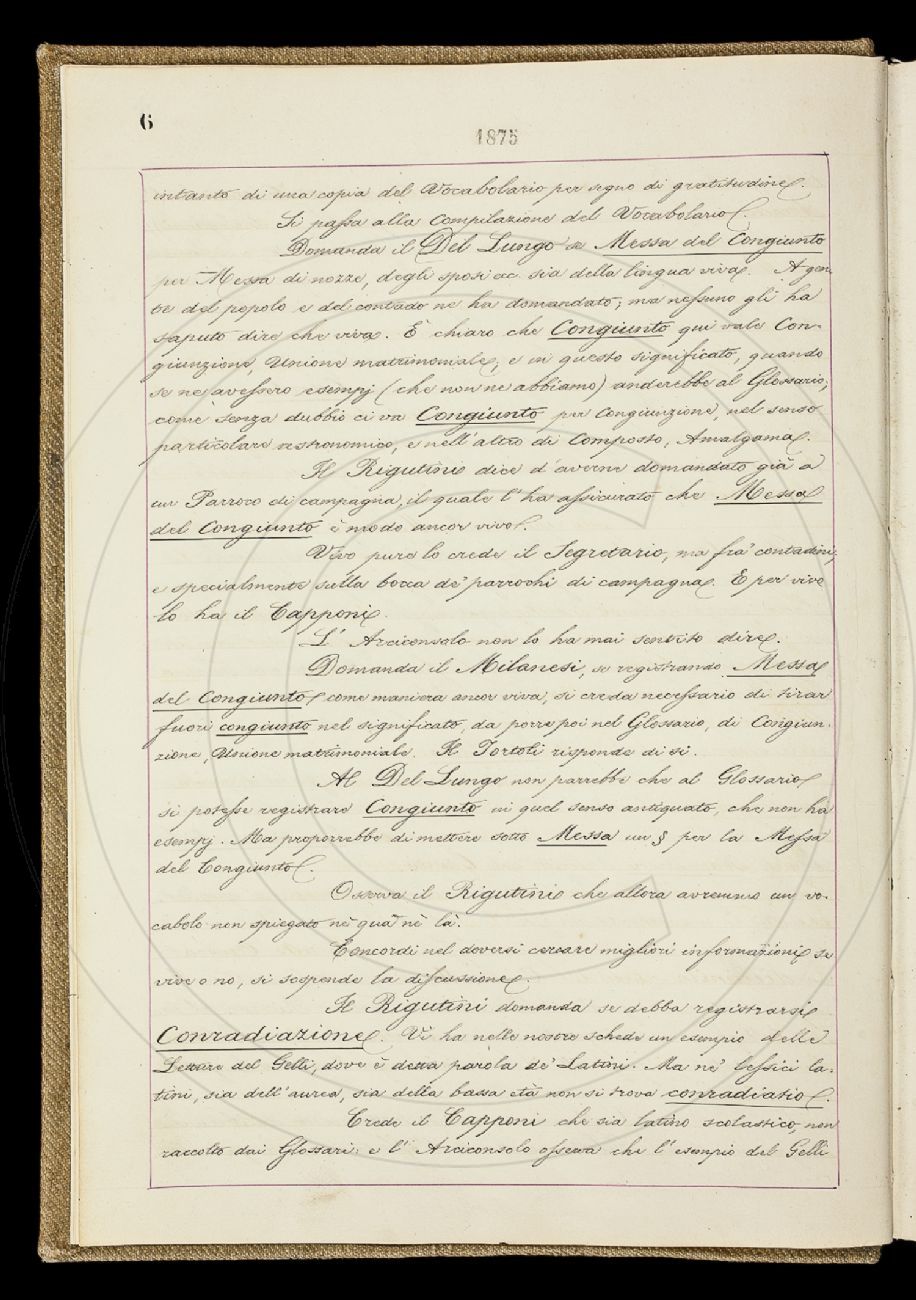 6
1875
intanto di una copia del Vocabolario per segno di gratitudine.
Si passa alla Compilazione del Vocabolario.
Domanda il Del Lungo se Messa del Congiunto
per Messa di nozze, degli sposi ec. sia della lingua viva. A gen-
te del popolo e del contado ne ha domandato; ma nessuno gli ha
saputo dire che viva. È chiaro che Congiunto qui vale Con-
giunzione, Unione matrimoniale, e in questo significato, quando
se ne avessero esempj (che non ne abbiamo) anderebbe al Glossario;
come senza dubbio ci va Congiunto per Congiunzione, nel senso
particolare astronomico, e nell'altro di Composto, Amalgama.
Il Rigutini dice d'averne domandato già a
un Parroco di campagna, il quale l'ha assicurato che Messa
del Congiunto è modo ancor vivo.
Vivo pure lo crede il Segretario, ma fra' contadini,
e specialmente sulla bocca de' parrochi di campagna. E per vivo
lo ha il Capponi.
L'Arciconsolo non lo ha mai sentito dire.
Domanda il Milanesi, se registrando Messa
del Congiunto come maniera ancor viva, si creda necessario di tirar
fuori congiunto nel significato, da porre poi nel Glossario, di Congiun-
zione, Unione matrimoniale. Il Tortoli risponde di sì.
Al Del Lungo non parrebbe che al Glossario
si potesse registrare Congiunto in quel senso antiquato, che non ha
esempj. Ma proporrebbe di mettere sotto Messa un § per la Messa
del Congiunto.
Osserva il Rigutini che allora avremmo un vo-
cabolo non spiegato nè quà nè là.
Concordi nel doversi cercare migliori informazioni se
vive o no, si sospende la discussione.
Il Rigutini domanda se debba registrarsi
Conradiazione. Vi ha nelle nostre schede un esempio delle
Letture del Gelli, dove è detta parola de' Latini. Ma nè lessici la-
tini, sia dell'aurea, sia della bassa età non si trova conradiatio.
Crede il Capponi che sia latino scolastico, non
raccolto dai Glossarj: e l'Arciconsolo osserva che l'esempio del Gelli